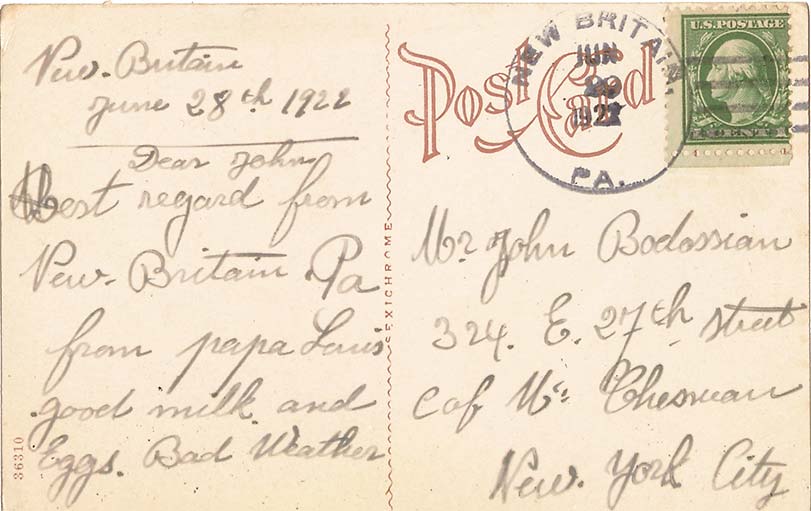 New. Britain
June 28th 1922
Dear John
Best regard from
New. Britain Pa
from papa Louis
good milk and
Eggs. Bad Weather
36310
SEXICHROME
Post Card
NEW BRITAIN,
JUN
29
1922
PA.
U.S. POSTAGE
1 CENT 1
Mr John Bodossian
324. E. 27th street
c of
New. York City